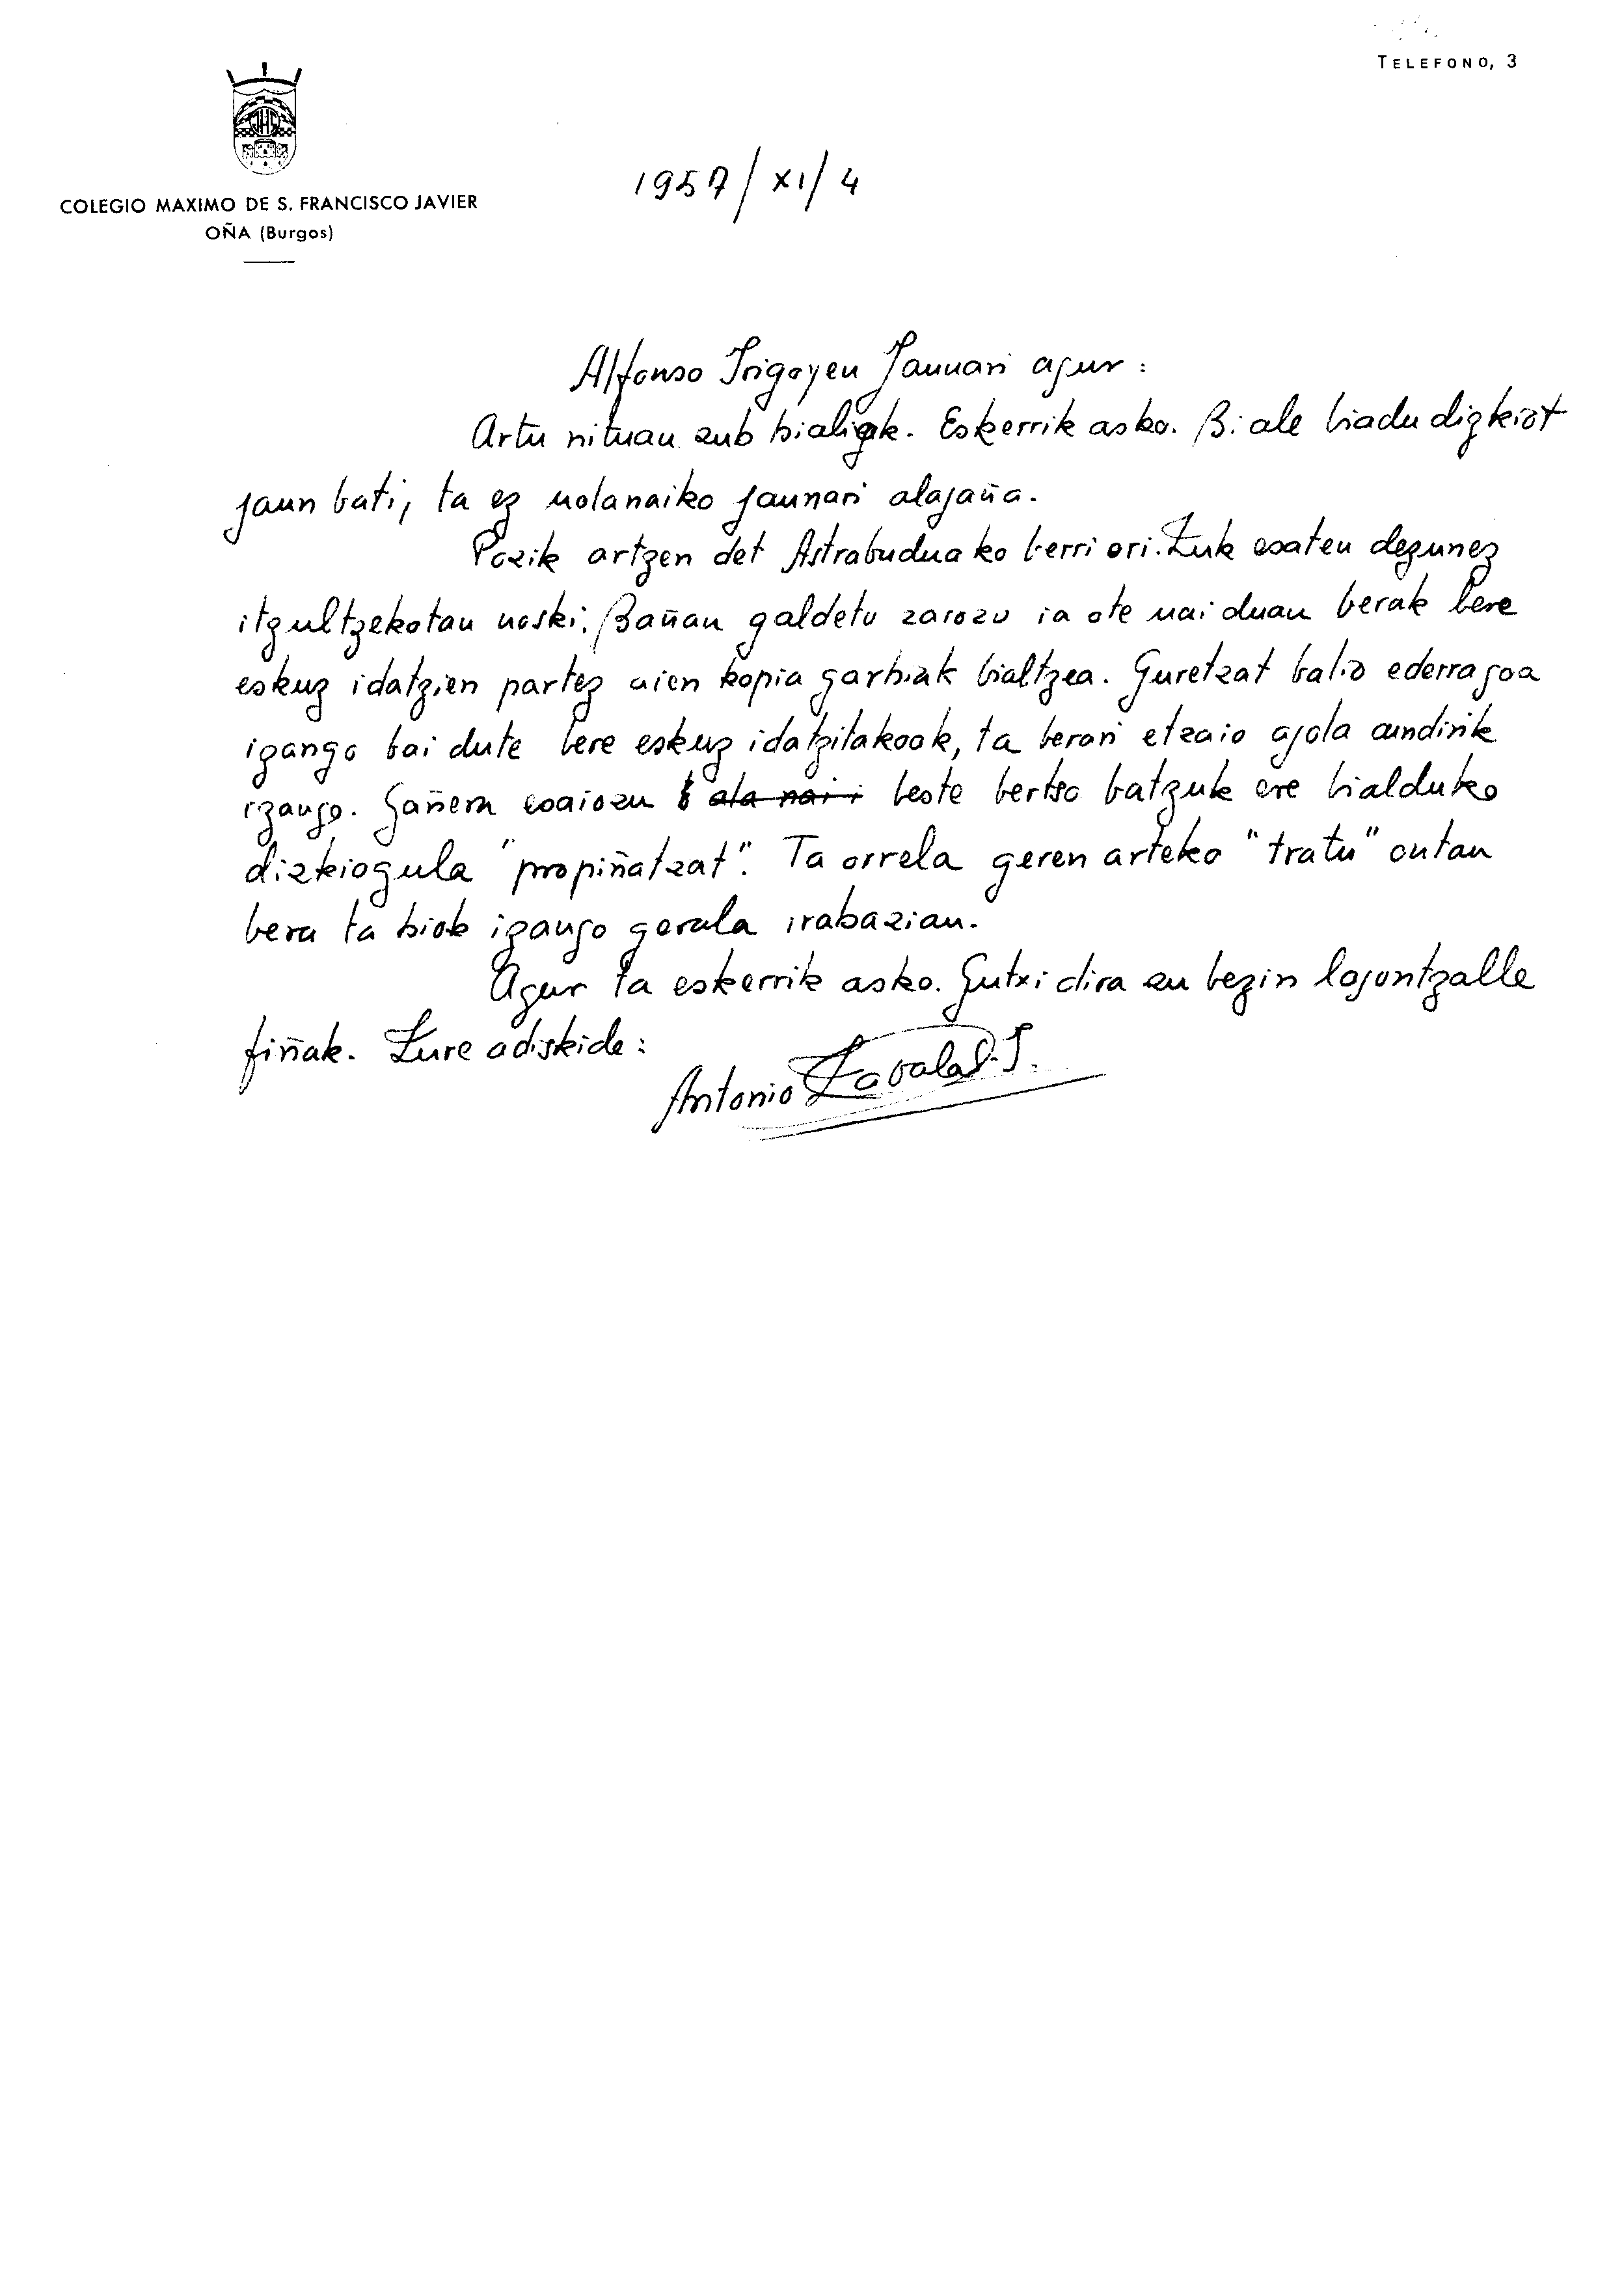 TELEFONO, 3
COLEGIO MAXIMO DE S. FRANCISCO JAVIER
OÑA (Burgos)
1957/XI/4
Alfonso Irigoyen Jaunari agur:
Artu nituan zuk bialiak. Eskerrik asko. Bi ale biadu dizkiot
jaun bati, ta ez nolanaiko jaunari alajaña.
Pozik artzen det Astrabuduako berri ori. Zuk esaten dezunez
itzultzekotan noski. Bañan galdetu zaiozu ia ote nai duan berak bere
eskuz idatzien partez aien kopia garbiak bialtzea. Guretzat balio ederragoa
izango bai dute bere eskuz idatzitakoak, ta berari etzaio ajola aundirik
izango. Gañera esaiozu ala nai beste bertso batzuk ere bialduko
dizkiogula "propiñatzat". Ta orrela geren arteko "tratu" ontan
bera ta biok izango gerala irabazian.
Agur ta eskerrik asko. Gutxi dira zu bezin laguntzalle
fiñak. Zure adiskide:
Antonio Zavala S.J.